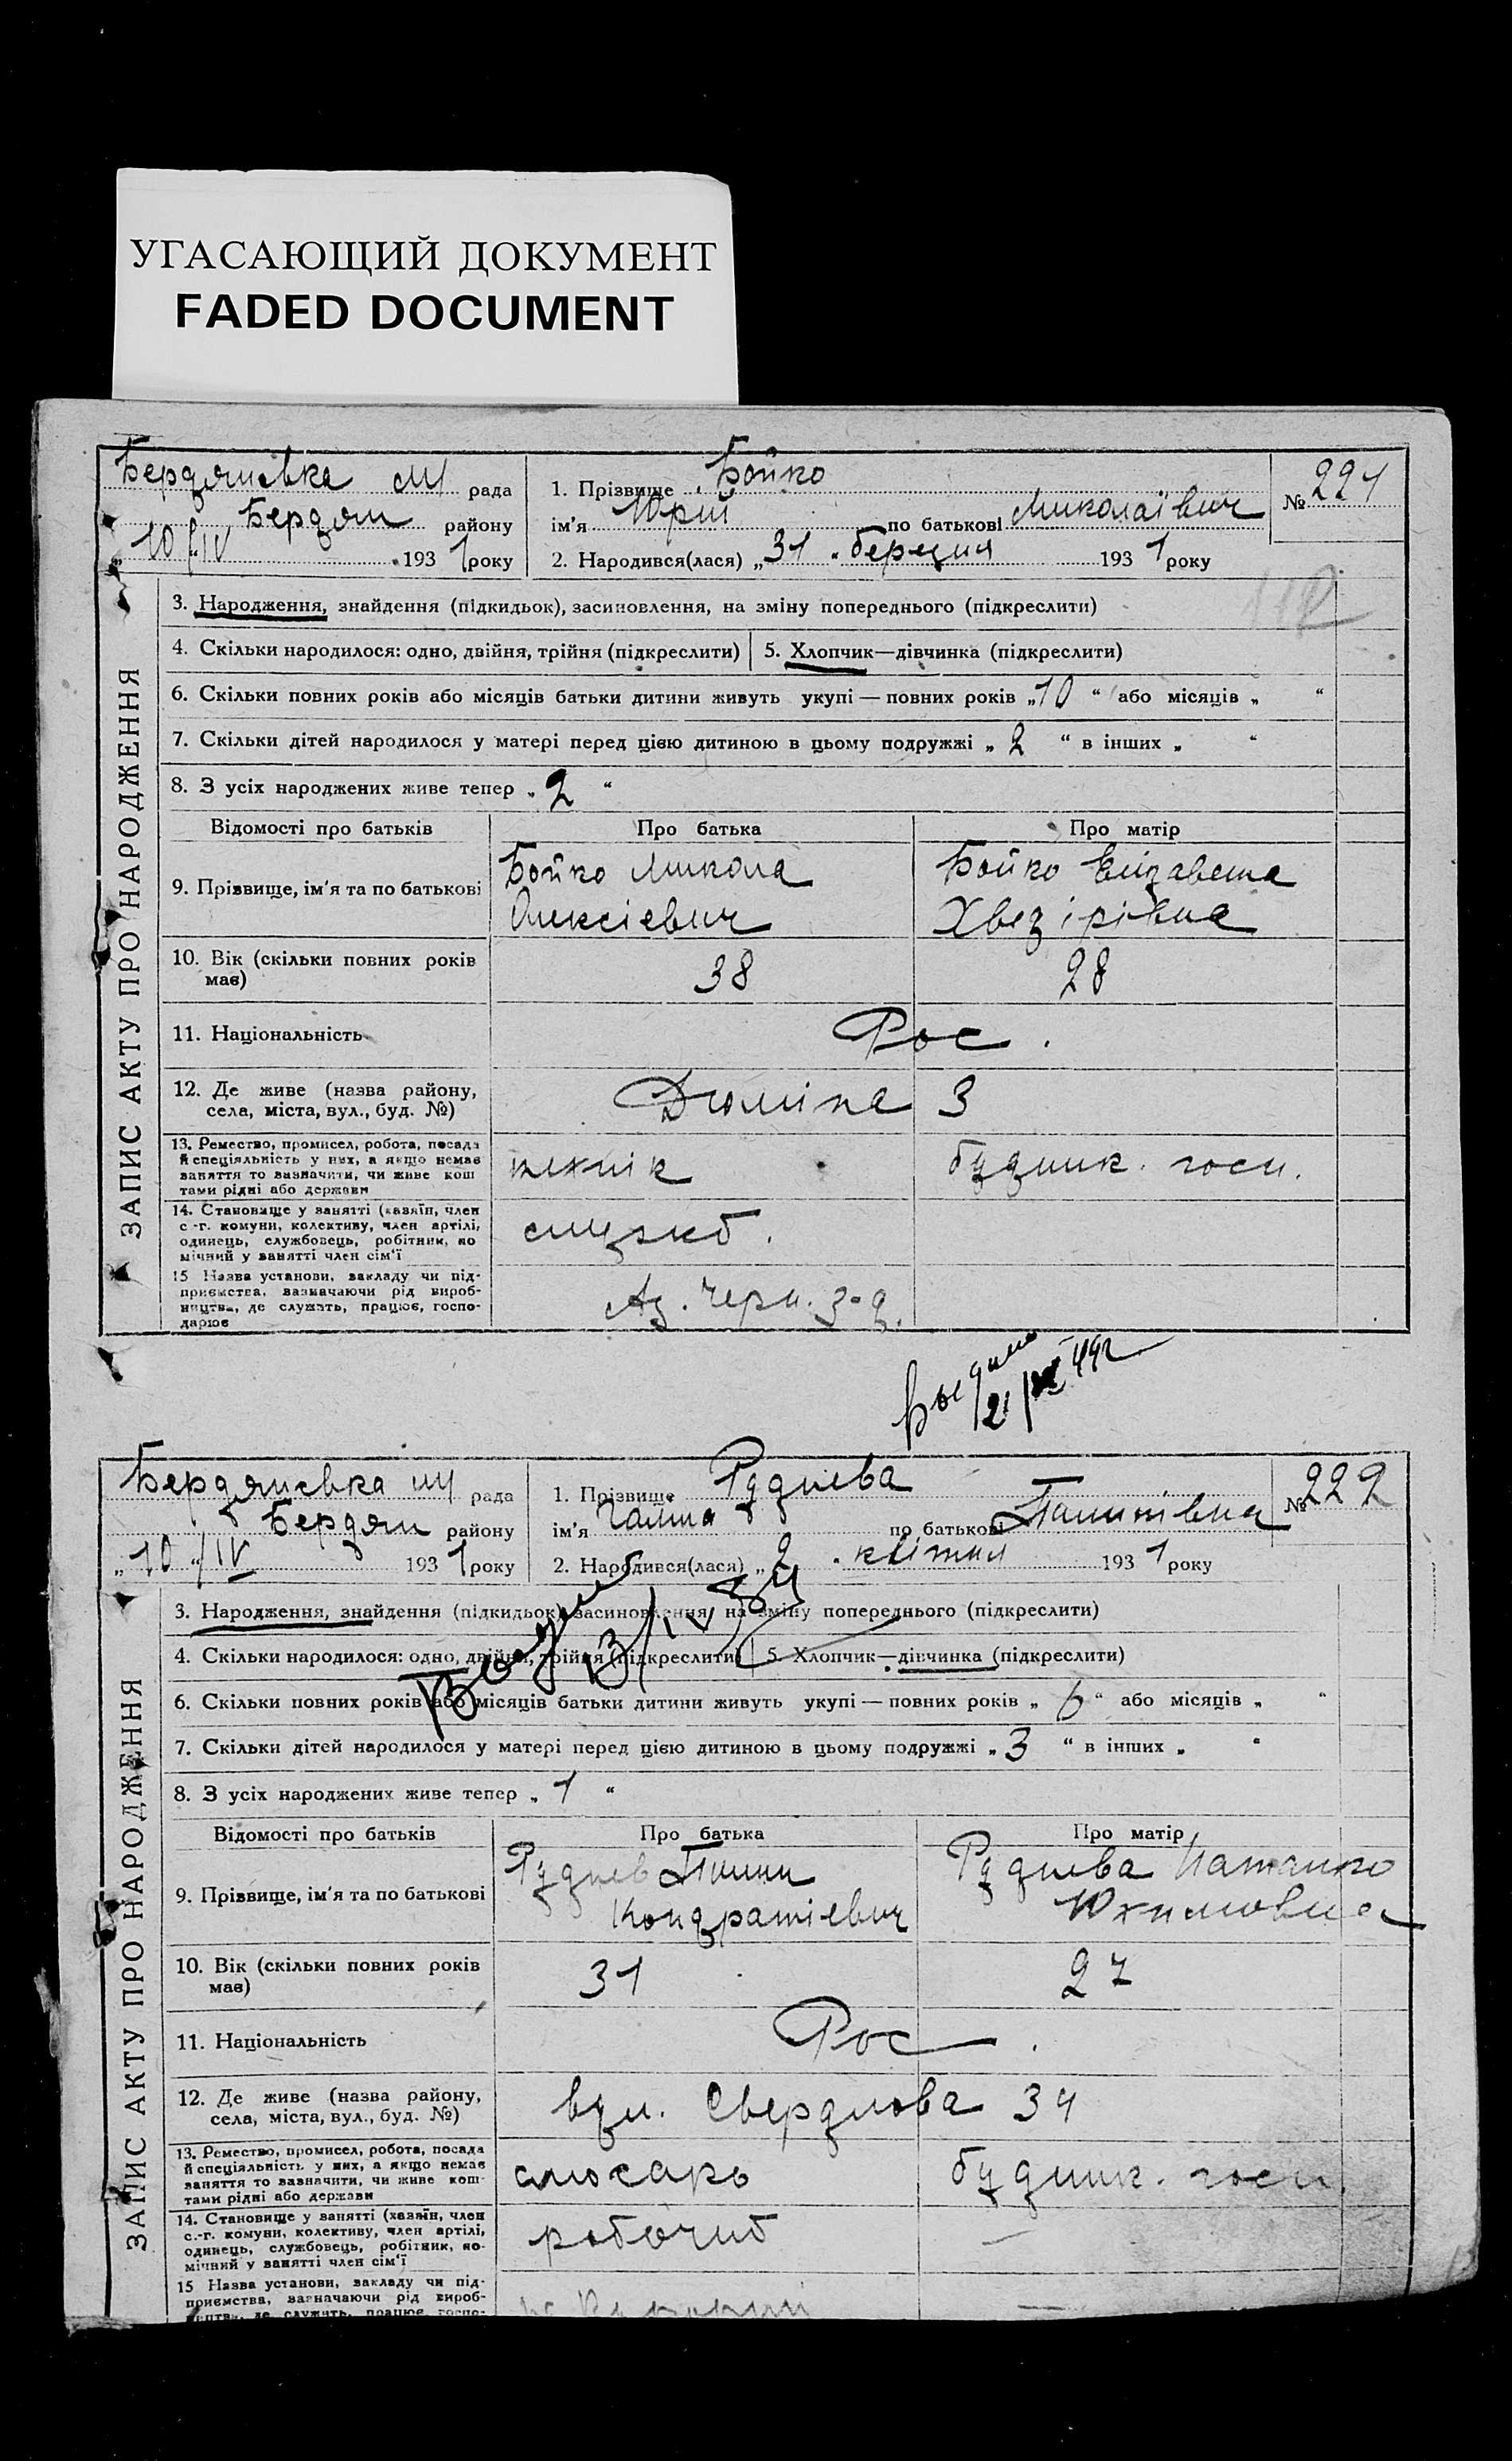 УГАСАЮЩИЙ ДОКУМЕНТ
FADED DOCUMENT
Бердянська м рада
Бердян району
„10“/IV 1931 року
1. Прізвище Бойко
ім'я Юрій по батькові Миколаївич
2. Народився(лася) „31“ березня 1931 року
№ 221
ЗАПИС АКТУ ПРО НАРОДЖЕННЯ
3. Народження, знайдення (підкидьок), засиновлення, на зміну попереднього (підкреслити)
112
4. Скільки народилося: одно, двійня, трійня (підкреслити) 5. Хлопчик—дівчинка (підкреслити)
6. Скільки повних років або місяців батьки дитини живуть укупі — повних років „10“ або місяців „ “
7. Скільки дітей народилося у матері перед цією дитиною в цьому подружжі „2“ в інших „ “
8. З усіх народжених живе тепер „2“
Відомості про батьків Про батька Про матір
9. Прізвище, ім'я та по батькові Бойко Микола Бойко Елізавета
Олексієвич Хведірівна
10. Вік (скільки повних років має) 38 28
11. Національність Рос.
12. Де живе (назва району, села, міста, вул., буд. №) Дюміна 3
13. Ремество, промисел, робота, посада й спеціяльність у них, а якщо немає заняття то зазначити, чи живе коштами рідні або держави технік будник. госп.
14. Становище у занятті (хазяїн, член с.-г. комуни, колективу, член артілі, одинець, службовець, робітник, помічний у занятті член сім'ї служб.
15 Назва установи, закладу чи підприємства, зазначаючи рід виробництва, де служать, працює, господарює Аз. Черн. з-д.
Выдано
21/ 49г
Бердянська м рада
Бердян району
„10“/IV 1931 року
1. Прізвище Руднева
ім'я Галина по батькові
2. Народився(лася) „2“ квітня 1931 року
№ 222
ЗАПИС АКТУ ПРО НАРОДЖЕННЯ
3. Народження, знайдення (підкидьок), засиновлення, на зміну попереднього (підкреслити)
4. Скільки народилося: одно, двійня, трійня (підкреслити) 5. Хлопчик—дівчинка (підкреслити)
6. Скільки повних років або місяців батьки дитини живуть укупі — повних років „6“ або місяців „ “
7. Скільки дітей народилося у матері перед цією дитиною в цьому подружжі „3“ в інших „ “
8. З усіх народжених живе тепер „1“
Відомості про батьків Про батька Про матір
9. Прізвище, ім'я та по батькові Руднев Руднева
Кондратієвич Юхимовна
10. Вік (скільки повних років має) 31 27
11. Національність Рос.
12. Де живе (назва району, села, міста, вул., буд. №) вул. Свердлова 34
13. Ремество, промисел, робота, посада й спеціяльність у них, а якщо немає заняття то зазначити, чи живе коштами рідні або держави слюсарь будник. госп.
14. Становище у занятті (хазяїн, член с.-г. комуни, колективу, член артілі, одинець, службовець, робітник, помічний у занятті член сім'ї робочий —
15 Назва установи, закладу чи підприємства, зазначаючи рід виробництва, де служать, працює, госпо- —